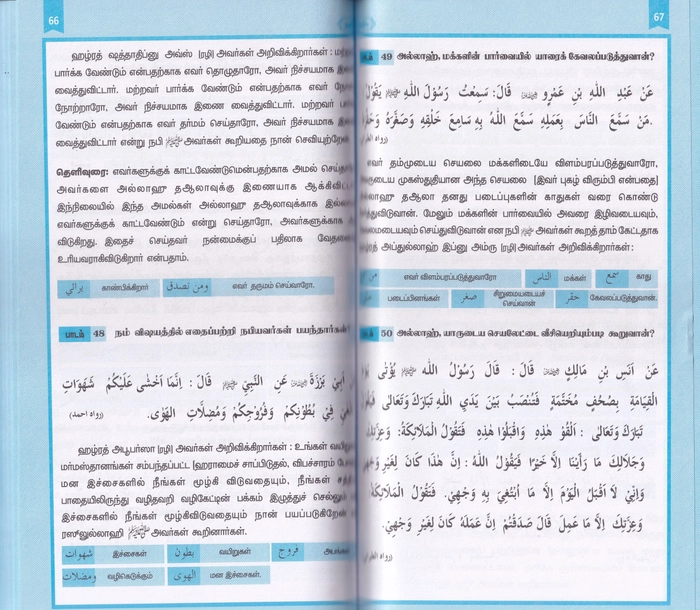 66
ஹழ்ரத் ஷத்தாதிப்னு அவ்ஸ் (ரழி) அவர்கள் அறிவிக்கிறார்கள் :
பார்க்க வேண்டும் என்பதற்காக எவர் தொழுதாரோ, அவர் நிச்சயமாக
வைத்துவிட்டார். மற்றவர் பார்க்க வேண்டும் என்பதற்காக எவர்
நோற்றாரோ, அவர் நிச்சயமாக இணை வைத்துவிட்டார். மற்றவர்
வேண்டும் என்பதற்காக எவர் தர்மம் செய்தாரோ, அவர் நிச்சயமாக
வைத்துவிட்டார் என்று நபி ﷺ அவர்கள் கூறியதை நான்
தெளிவுரை: எவர்களுக்குக் காட்டவேண்டுமென்பதற்காக அமல்
அவர்களை அல்லாஹ் தஆலாவுக்கு இணையாக
இந்நிலையில் இந்த அமல்கள் அல்லாஹ் தஆலாவுக்காக
எவர்களுக்குக் காட்டவேண்டும் என்று செய்தாரோ, அவர்களுக்காக
விடுகிறது. இதைச் செய்தவர் நன்மைக்குப் பதிலாக
உரியவராகிவிடுகிறார் என்பதாம்.
يرائي காண்பிக்கிறார் ومن تصدق எவர் தருமம் செய்வாரோ.
பாடம் 48 நம் விஷயத்தில் எதைப்பற்றி நபியவர்கள் பயந்தார்கள்?
أَبِيْ بَرْزَةَ عَنِ النَّبِيِّ ﷺ قَالَ: إِنَّمَا أَخْشٰى عَلَيْكُمْ شَهَوَاتِ
فِيْ بُطُوْنِكُمْ وَفُرُوْجِكُمْ وَمُضِلَّاتِ الْهَوٰى. (رواه احمد)
ஹழ்ரத் அபூபர்ஸா (ரழி) அவர்கள் அறிவிக்கிறார்கள் : உங்கள்
மர்மஸ்தானங்கள் சம்பந்தப்பட்ட (ஹராமைச் சாப்பிடுதல், விபச்சாரம்
மன இச்சைகளில் நீங்கள் மூழ்கி விடுவதையும், நீங்கள்
பாதையிலிருந்து வழிதவறி வழிகேட்டின் பக்கம் இழுத்துச்
இச்சைகளில் நீங்கள் மூழ்கிவிடுவதையும் நான் பயப்படுகிறேன்
ரஸூலுல்லாஹி ﷺ அவர்கள் கூறினார்கள்.
شهوات இச்சைகள் بطون வயிறுகள் فروج
ومضلات வழிகெடுக்கும் الهوى மன இச்சைகள்.
67
49 அல்லாஹ், மக்களின் பார்வையில் யாரைக் கேவலப்படுத்துவான்?
عَنْ عَبْدِ اللهِ بْنِ عَمْرٍو قَالَ: سَمِعْتُ رَسُوْلَ اللهِ ﷺ يَقُوْلُ
مَنْ سَمَّعَ النَّاسَ بِعَمَلِهِ سَمَّعَ اللهُ بِهِ سَامِعَ خَلْقِهِ وَصَغَّرَهُ
எவர் தம்முடைய செயலை மக்களிடையே விளம்பரப்படுத்துவாரோ,
முகஸ்துதியான அந்த செயலை (இவர் புகழ் விரும்பி என்பதை)
தஆலா தனது படைப்புகளின் காதுகள் வரை கொண்டு
மேலும் மக்களின் பார்வையில் அவரை இழிவடையவும்,
செய்துவிடுவான் என நபி ﷺ அவர்கள் கூறத் தாம் கேட்டதாக
அப்துல்லாஹ் இப்னு அம்ரு (ரழி) அவர்கள் அறிவிக்கிறார்கள்:
எவர் விளம்பரப்படுத்துவாரோ الناس மக்கள் سمع காது
படைப்பினங்கள் صغر சிறுமையடையச் செய்வான் حقر கேவலப்படுத்துவான்.
50 அல்லாஹ், யாருடைய செயலேட்டை வீசியெறியும்படி கூறுவான்?
عَنْ اَنَسِ بْنِ مَالِكٍ قَالَ: قَالَ رَسُوْلُ اللهِ ﷺ يُؤْتٰى
الْقِيَامَةِ بِصُحُفٍ مُخَتَّمَةٍ فَتُنْصَبُ بَيْنَ يَدَيِ اللهِ تَبَارَكَ وَتَعَالٰى
تَبَارَكَ وَتَعَالٰى : اَلْقُوْ هٰذِهِ وَاقْبَلُوْا هٰذِهِ فَتَقُوْلُ الْمَلَائِكَةُ:
وَجَلَالِكَ مَا رَأَيْنَا اِلَّا خَيْرًا فَيَقُوْلُ اللهُ : اِنَّ هٰذَا كَانَ لِغَيْرِ
وَاِنِّيْ لَا اَقْبَلُ الْيَوْمَ اِلَّا مَا ابْتُغِيَ بِهِ وَجْهِيْ. فَتَقُوْلُ الْمَلَائِكَةُ
وَعِزَّتِكَ اِلَّا مَا عَمِلَ قَالَ صَدَقْتُمْ اِنَّ عَمَلَهُ كَانَ لِغَيْرِ وَجْهِيْ.